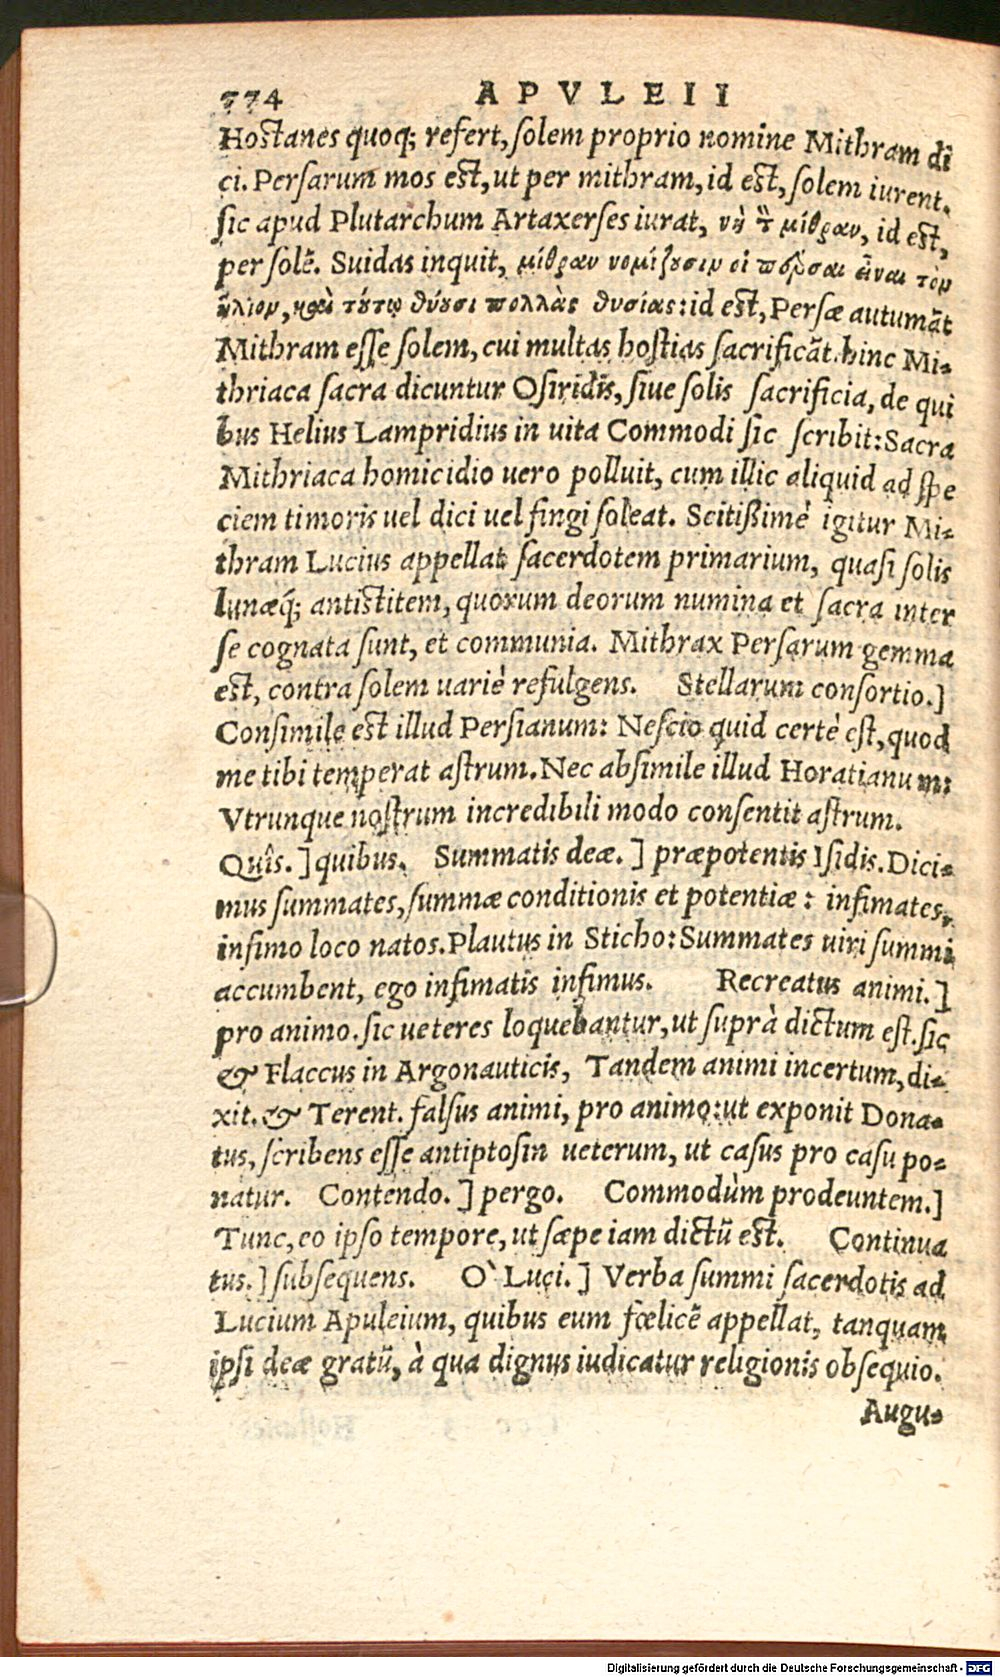 774 APVLEII
Hostanes quoq; refert, solem proprio nomine Mithram di
ci. Persarum mos est, ut per mithram, id est, solem iurent.
sic apud Plutarchum Artaxerses iurat, νὴ τ̃ μίθραν, id est,
per solẽ. Suidas inquit, μίθραν νομίζουσιν οἱ πέρσαι εἶναι τὸν
ἥλιον, καὶ τούτῳ θύουσι πολλὰς θυσίας: id est, Persæ autumãt
Mithram esse solem, cui multas hostias sacrificãt. hinc Mi-
thriaca sacra dicuntur Osiridis, siue solis sacrificia, de qui
bus Helius Lampridius in uita Commodi sic scribit: Sacra
Mithriaca homicidio uero polluit, cum illic aliquid ad spe
ciem timoris uel dici uel fingi soleat. Scitißimè igitur Mi-
thram Lucius appellat sacerdotem primarium, quasi solis
lunæq́; antistitem, quorum deorum numina et sacra inter
se cognata sunt, et communia. Mithrax Persarum gemma
est, contra solem uariè refulgens. Stellarum consortio.]
Consimile est illud Persianum: Nescio quid certè est, quod
me tibi temperat astrum. Nec absimile illud Horatianum:
Vtrunque nostrum incredibili modo consentit astrum.
Quîs.] quibus. Summatis deæ.] præpotentis Isidis. Dici-
mus summates, summæ conditionis et potentiæ: infimates,
infimo loco natos. Plautus in Sticho: Summates uiri summi
accumbent, ego infimatis infimus. Recreatus animi.]
pro animo. sic ueteres loquebantur, ut suprà dictum est. sic
& Flaccus in Argonauticis, Tandem animi incertum, di-
xit. & Terent. falsus animi, pro animo: ut exponit Dona-
tus, scribens esse antiptosin ueterum, ut casus pro casu po-
natur. Contendo.] pergo. Commodùm prodeuntem.]
Tunc, eo ipso tempore, ut sæpe iam dictũ est. Continua
tus.] subsequens. O` Luci.] Verba summi sacerdotis ad
Lucium Apuleium, quibus eum fœlicẽ appellat, tanquam
ipsi deæ gratũ, à qua dignus iudicatur religionis obsequio.
Augu-
Digitalisierung gefördert durch die Deutsche Forschungsgemeinschaft - DFG